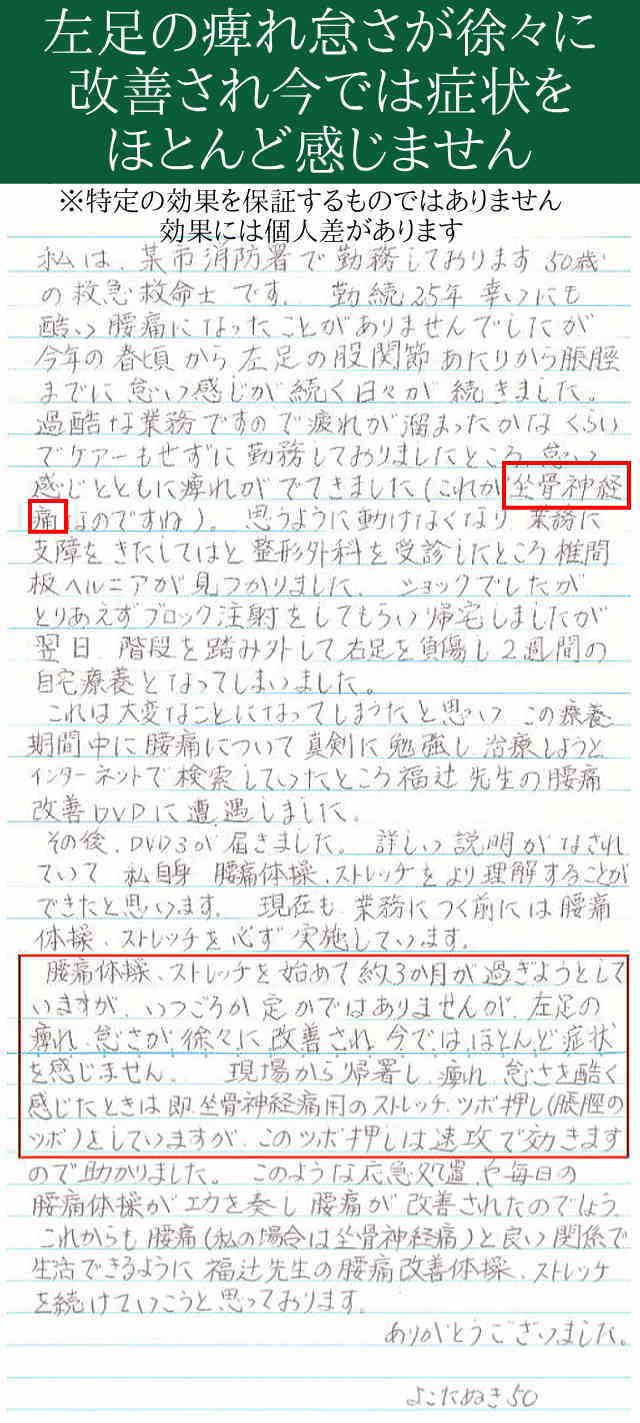 左足の痺れ怠さが徐々に
改善され今では症状を
ほとんど感じません
※特定の効果を保証するものではありません
効果には個人差があります
私は、某市消防署で勤務しております50歳
の救急救命士です。勤続25年幸いにも
酷い腰痛になったことがありませんでしたが
今年の春頃から左足の股関節あたりから脹脛
までに怠い感じが続く日々が続きました。
過酷な業務ですので疲れが溜まったかなくらい
でケアーもせずに勤務しておりましたところ、怠い
感じとともに痺れがでてきました(これが坐骨神経
痛なのですね)。思うように動けなくなり業務に
支障をきたしてはと整形外科を受診したところ椎間
板ヘルニアが見つかりました。ショックでしたが
とりあえずブロック注射をしてもらい帰宅しましたが
翌日、階段を踏み外して右足を負傷し2週間の
自宅療養となってしまいました。
これは大変なことになってしまうたと思い、この療養
期間中に腰痛について真剣に勉強し治療しようと
インターネットで検索していったところ福辻先生の腰痛
改善DVDに遭遇しました。
その後、DVD3が届きました。詳しい説明がなされ
ていて私自身腰痛体操、ストレッチをより理解することが
できたと思います。現在も業務につく前には腰痛
体操、ストレッチを必ず実施しています。
腰痛体操、ストレッチを始めて約3か月が過ぎようとして
いますが、いつごろか定かではありませんが、左足の
痺れ、怠さが徐々に改善され、今では、ほとんど症状
を感じません。現場から帰署し、痺れ、怠さを酷く
感じたときは即、坐骨神経痛用のストレッチ、ツボ押し(脹脛の
ツボ)をしていますが、このツボ押しは速攻で効きます
ので助かりました。このような応急処置、や毎日の
腰痛体操が功を奏し腰痛が改善されたのでしょう。
これからも腰痛(私の場合は坐骨神経痛)と良い関係で
生活できるように福辻先生の腰痛改善体操、ストレッチ
を続けていこうと思っております。
ありがとうございました。
よこたぬき50